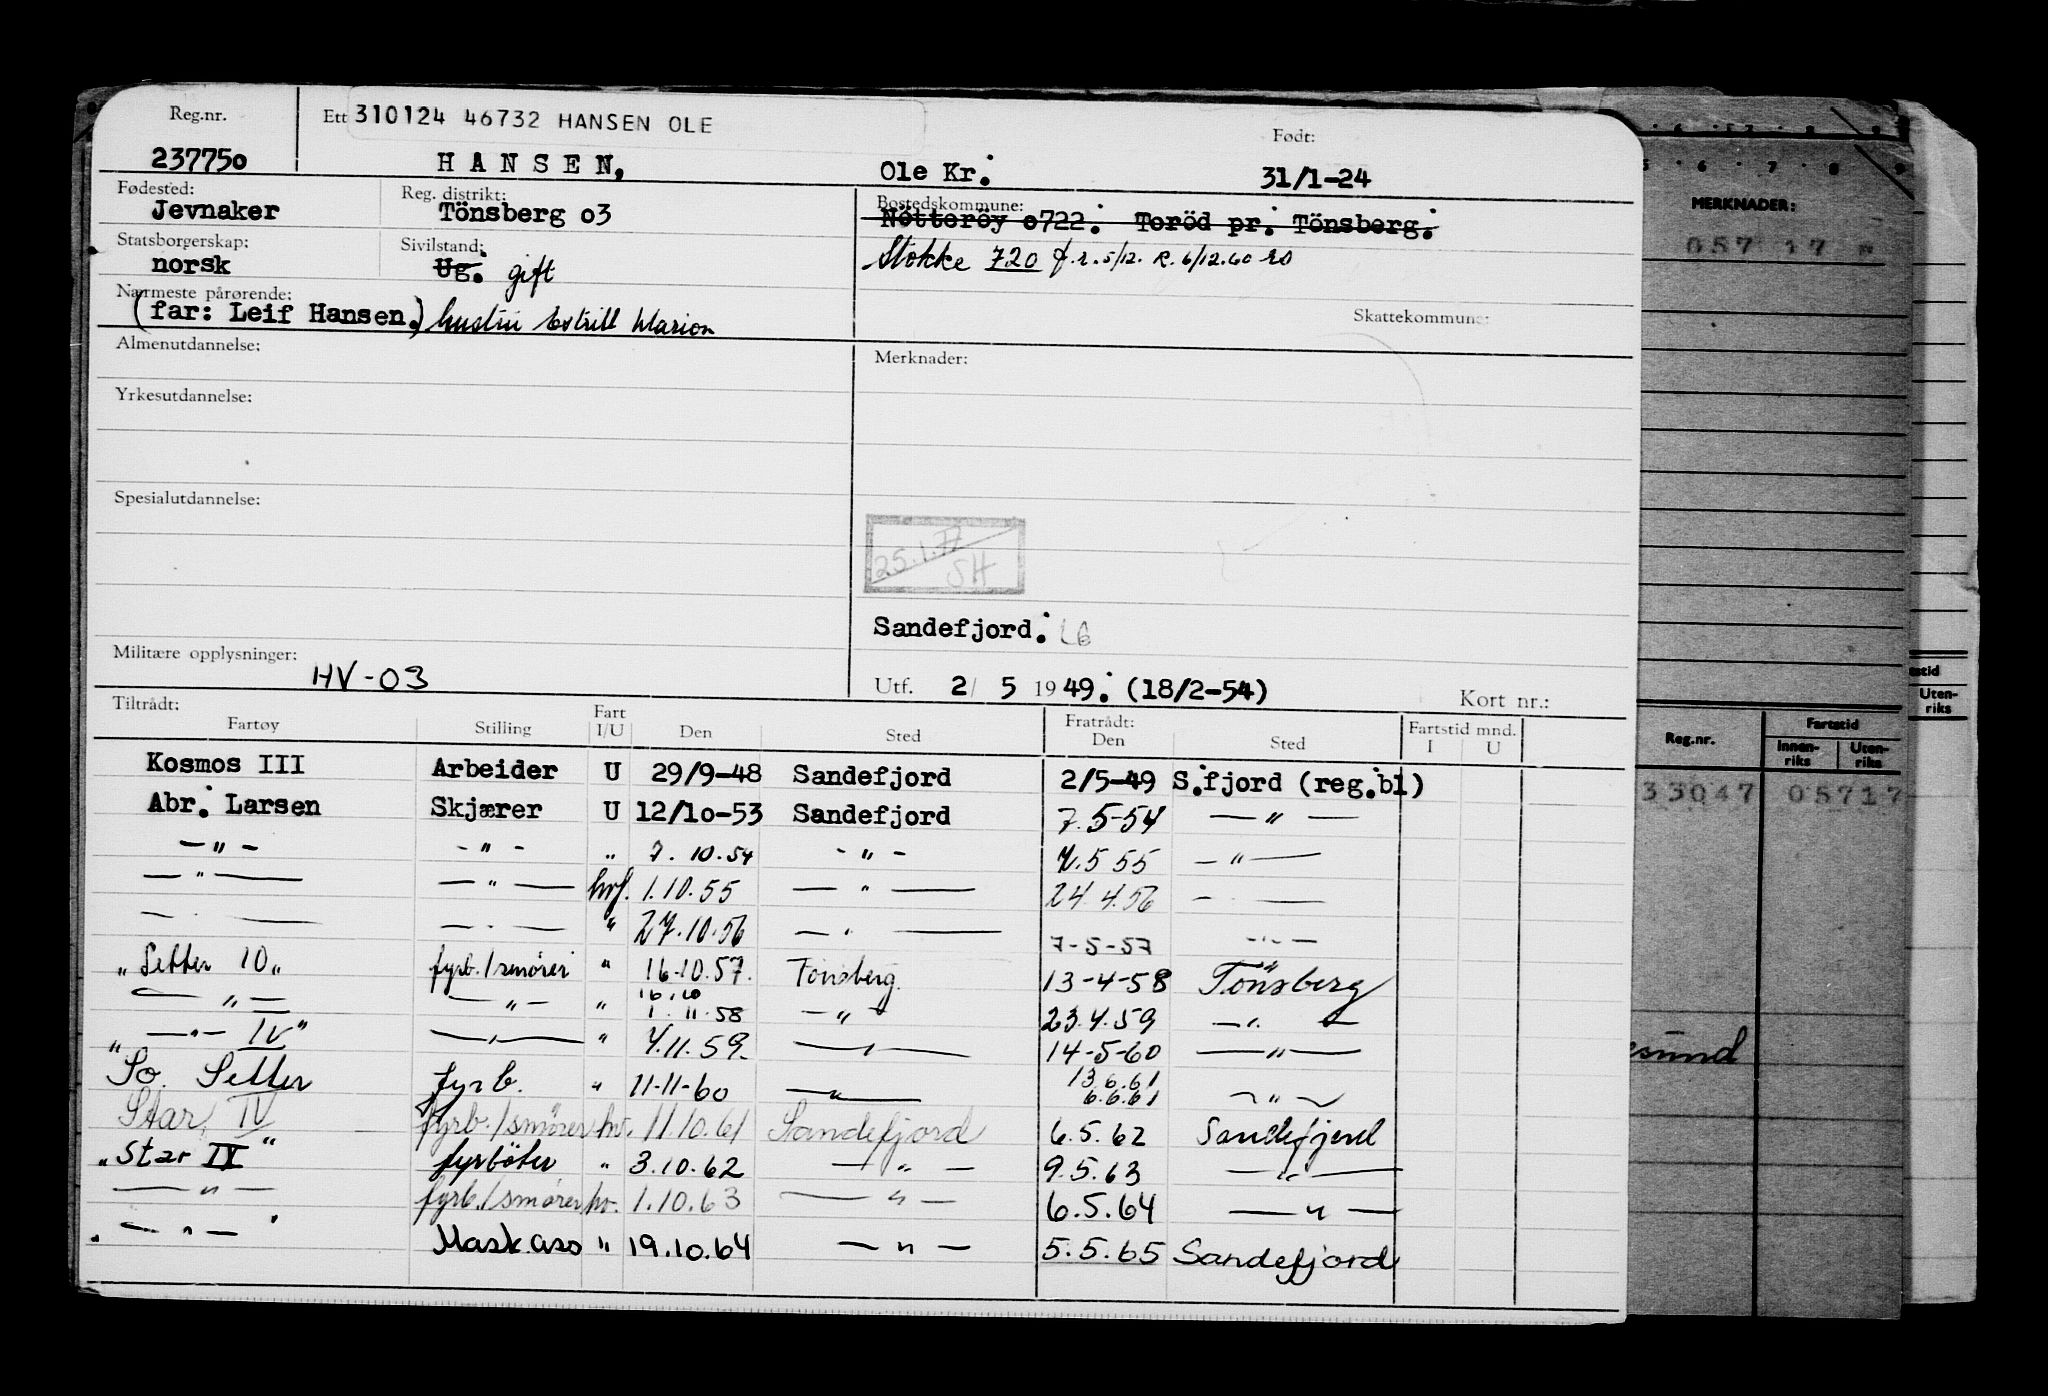 Reg.nr. Ett 310124 46732 HANSEN OLE Født:
237750 HANSEN, Ole Kr. 31/1-24
Fødested: Reg. distrikt: Bostedskommune:
Jevnaker Tönsberg o3 Nötteröy o722. Toröd pr. Tönsberg.
Statsborgerskap: Sivilstand: Stokke 720 f.r. 5/12. R. 6/12.60
norsk Ug. gift
Nærmeste pårørende: Skattekommune:
(far: Leif Hansen.) hustru Marion
Almenutdannelse: Merknader:
Yrkesutdannelse:
Spesialutdannelse:
25.1.77
SH
Sandefjord.
Militære opplysninger: HV-03
Utf. 2/ 5 1949. (18/2-54) Kort nr.:
Tiltrådt: Fratrådt: Fartstid mnd.
Fartøy Stilling Fart I/U Den Sted Den Sted I U
Kosmos III Arbeider U 29/9-48 Sandefjord 2/5-49 S.fjord (reg.bl)
Abr. Larsen Skjærer U 12/1o-53 Sandefjord 7.5-54 — " —
— " — — " — " 7. 10. 54 — " — 7.5 55 — " —
— " — — " — hvf. 1.10.55 — " — 24.4.56 — —
— . — — . — " 27.10.56 — . — 7-5-57 — " —
"Setter 10" fyrb./smører " 16.10.57. Tønsberg 13-4-58 Tönsberg
— " — — " — " 16.10 1. 11. 58 — " — 23.4.59 — " —
" — " — IV" — " — " 4.11.59. — " — 14-5-60 — " —
So. Setter fyrb. " 11-11-60 — " — 13.6.61 6.6.61 — " —
Star IV fyrb./smører hv. 11.10.61 Sandefjord 6.5.62 Sandefjord
"Star IV" fyrböter " 3.10.62 — " — 9.5.63 — " —
— " — fyrb./smører hv. 1.10.63 — " — 6.5.64 — " —
" — " — " Mask.ass " 19.10.64 — " — 5.5.65 Sandefjord
MERKNADER:
057 17
Reg.nr. Fartstid
Innen-riks Uten-riks
33047 05717
esund
Uten-riks